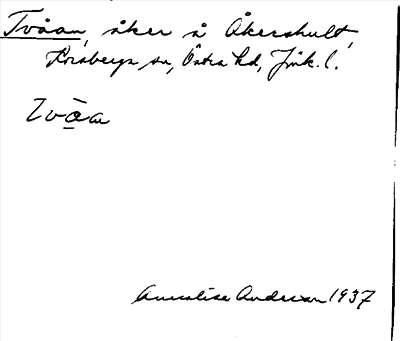 Tvåan, åker å Åkershult,
Korsberga sn, Östra hd, Jönk. l.
Tvåa
Annalisa Anderson 1937